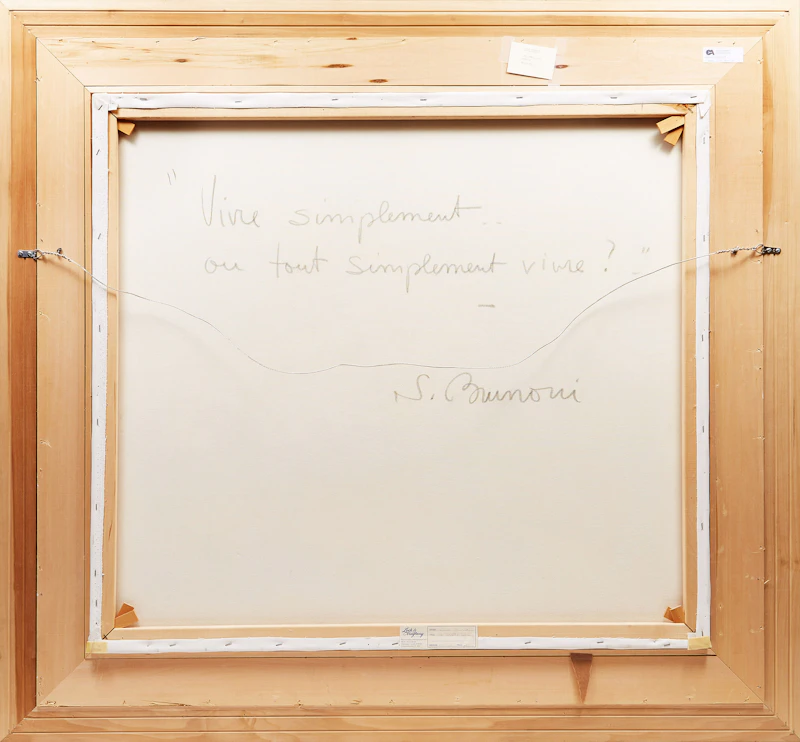 " Vivre simplement..
ou tout simplement vivre ? .."
S. Brunoni